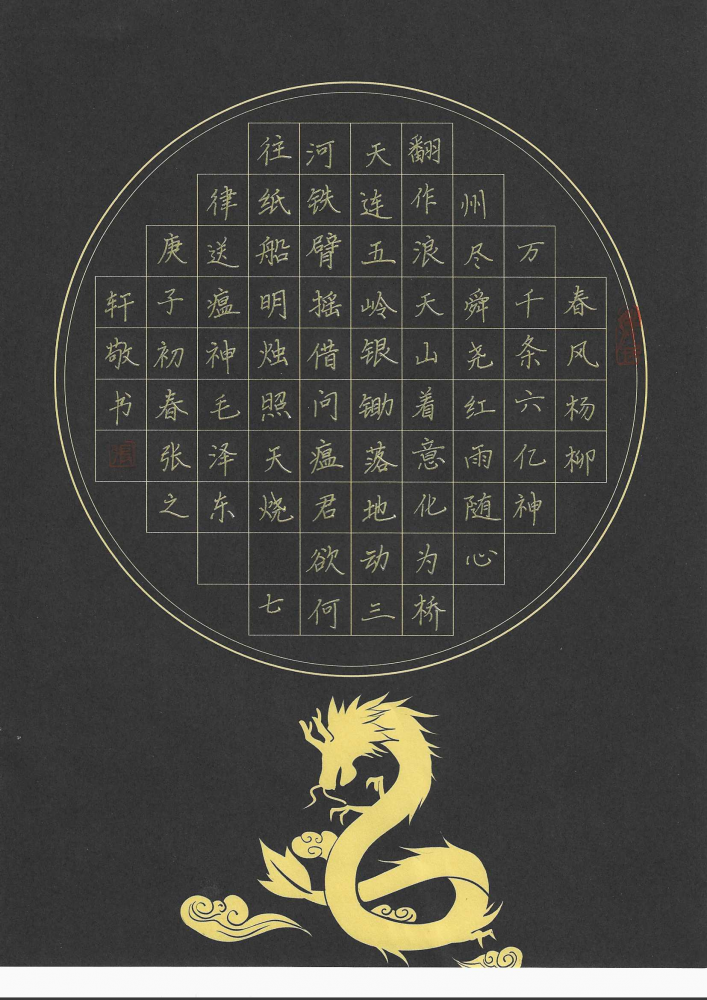 春风杨柳
万千条六亿神
州尽舜尧红雨随心
翻作浪天山着意化为桥
天连五岭银锄落地动三
河铁臂摇借问瘟君欲何
往纸船明烛照天烧 七
律送瘟神毛泽东
庚子初春张之
轩敬书